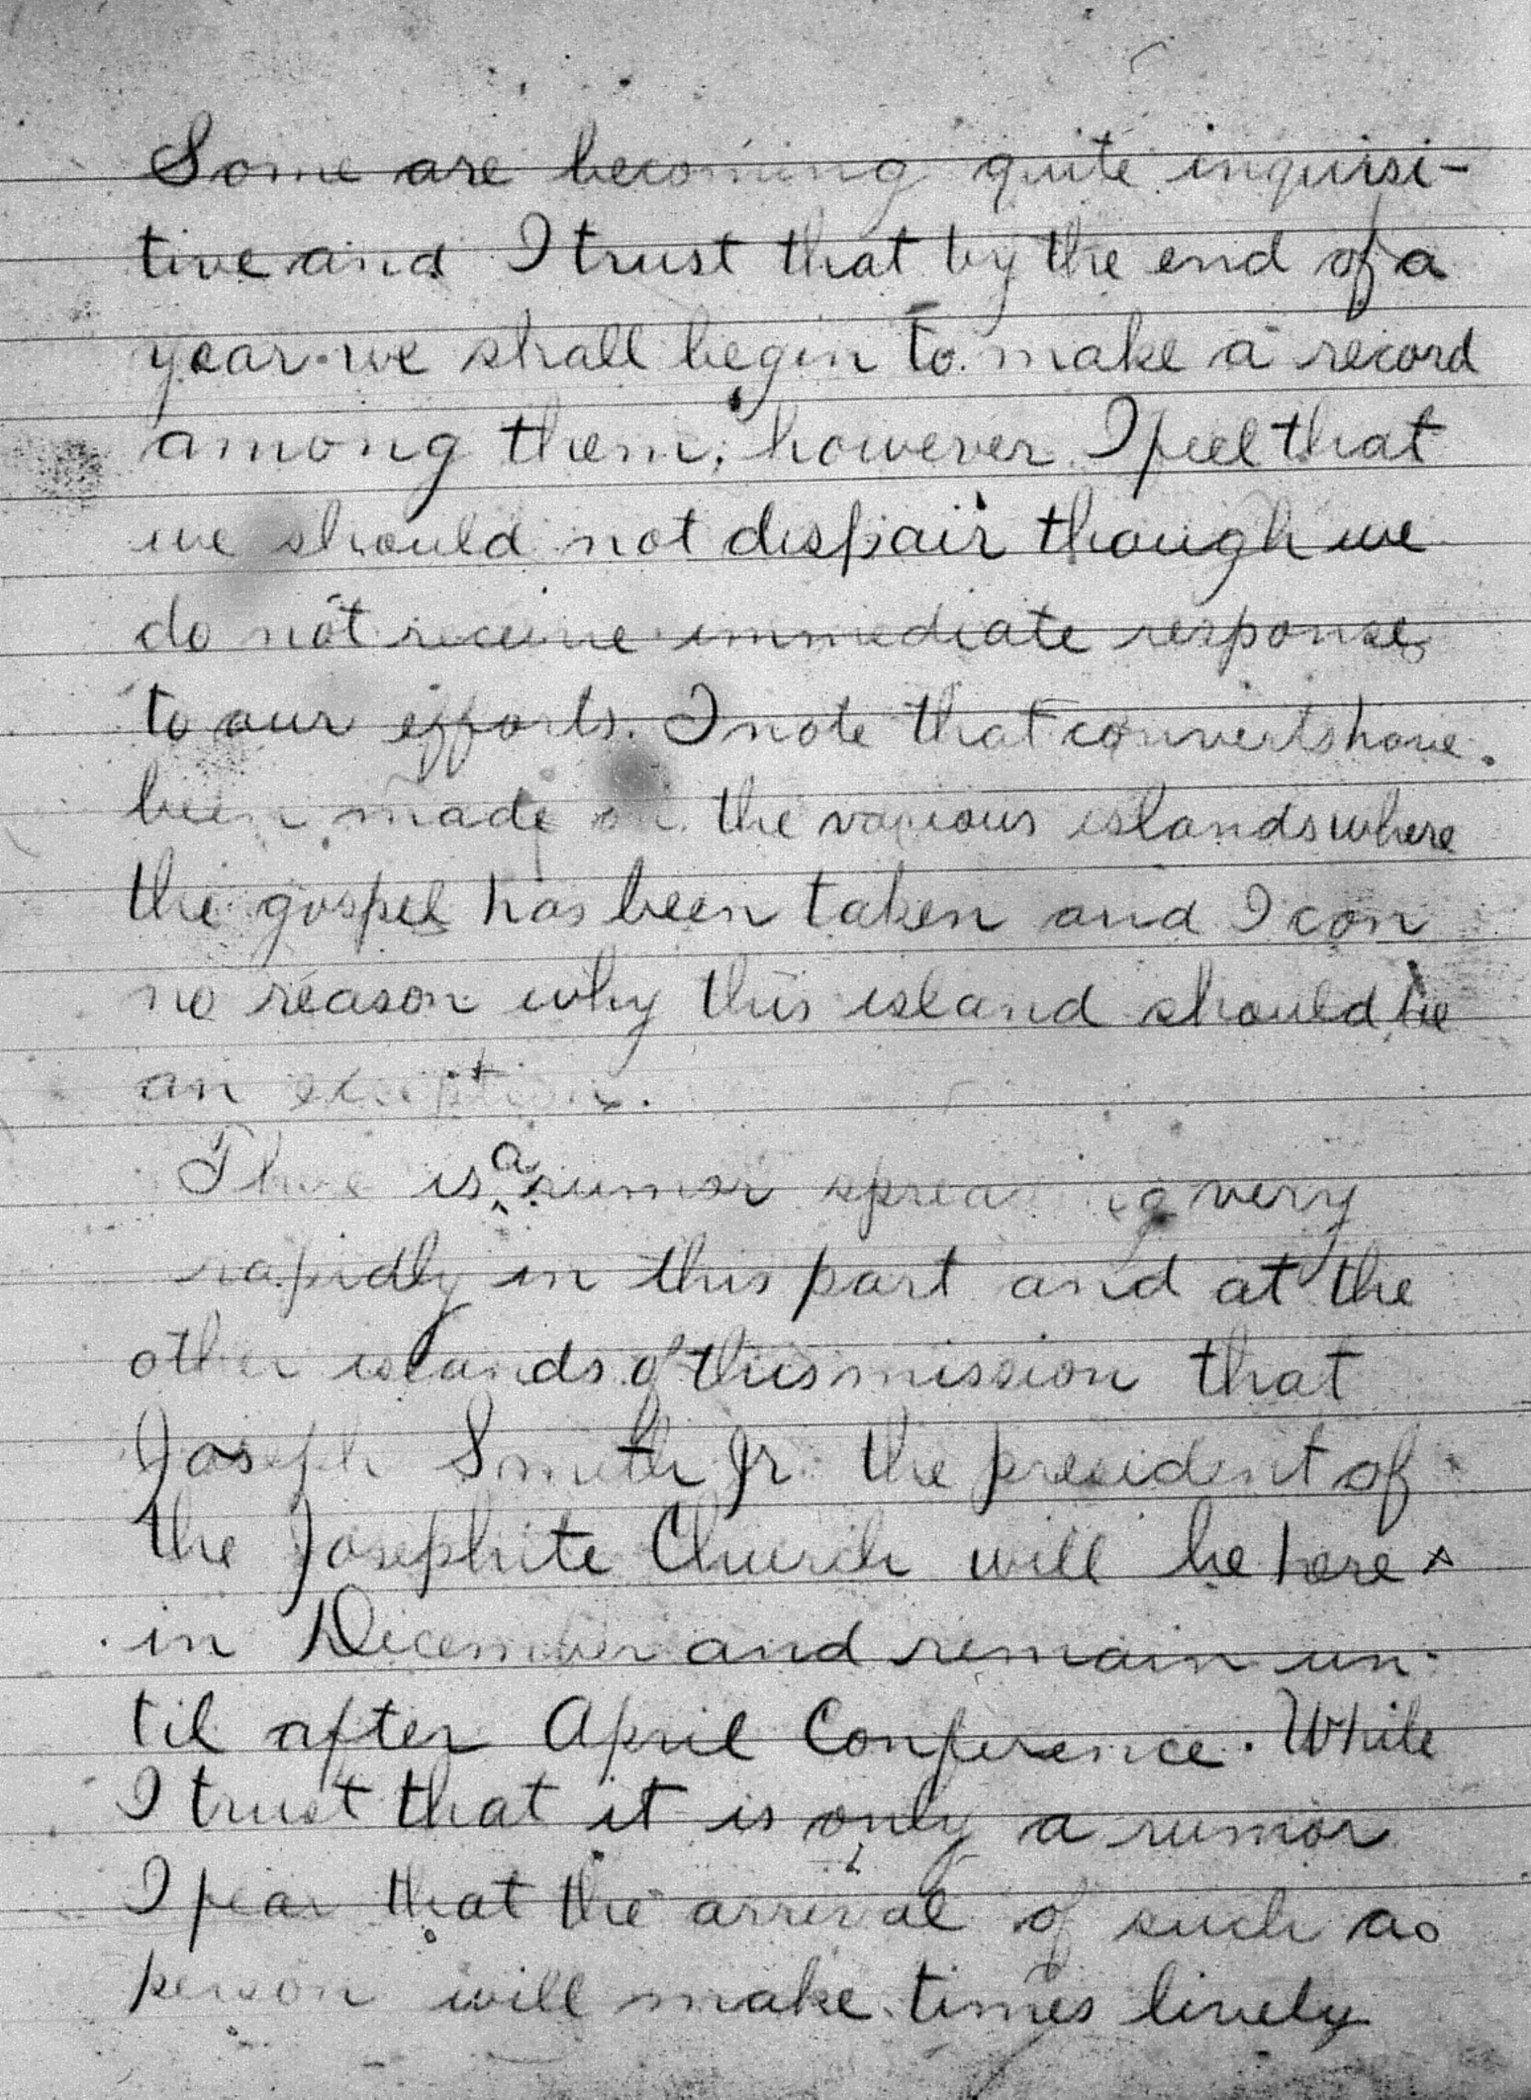 Some are becoming quite inquisi-
tive and I trust that by the end of a
year we shall begin to make a record
among them; however I feel that
we should not despair though we
do not receive immediate response
to our efforts. I note that converts have
been made on the various islands where
the gospel has been taken and I can
no reason why this island should be
an exception.
There is a rumor spreading very
rapidly in this part and at the
other islands of this mission that
Joseph Smith Jr. the president of
the Josephite Church will be here
in December and remain un-
til after April Conference. While
I trust that it is only a rumor
I fear that the arrival of such a
person will make times lively